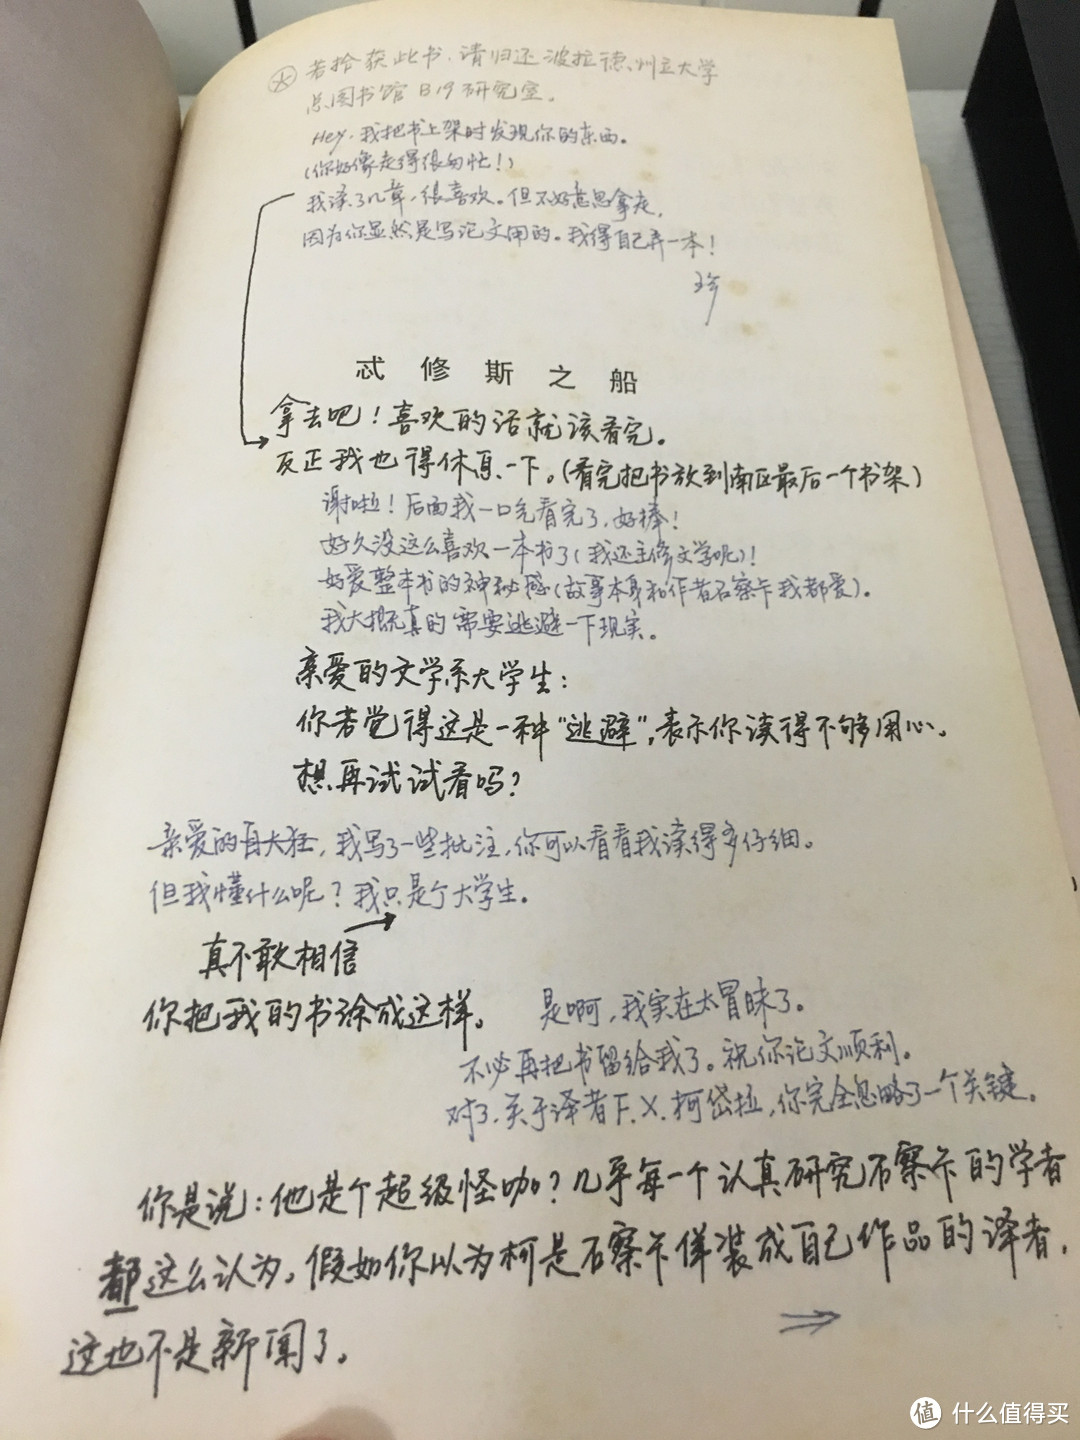 若拾获此书,请归还波拉德州立大学
总图书馆 B19 研究室。
Hey,我把书上架时发现你的东西。
(你好像走得很匆忙!)
我读了几章,很喜欢。但不好意思拿走,
因为你显然是写论文用的。我得自己弄一本!
珍
忒修斯之船
拿去吧!喜欢的话就该看完。
反正我也得休息一下。(看完把书放到南区最后一个书架)
谢啦!后面我一口气看完了,好棒!
好久没这么喜欢一本书了(我还主修文学呢)!
好爱整本书的神秘感(故事本身和作者石察卡我都爱)。
我大概真的需要逃避一下现实。
亲爱的文学系大学生:
你若觉得这是一种“逃避”,表示你读得不够用心。
想再试试看吗?
亲爱的自大狂,我写了一些批注,你可以看看我读得多仔细。
但我懂什么呢?我只是个大学生。
真不敢相信
你把我的书涂成这样。
是啊,我实在太冒昧了。
不必再把书留给我了。祝你论文顺利。
对了,关于译者F.X.柯岱拉,你完全忽略了一个关键。
你是说:他是个超级怪咖?几乎每一个认真研究石察卡的学者
都这么认为。假如你以为柯是石察卡佯装成自己作品的译者,
这也不是新闻了。
值 什么值得买